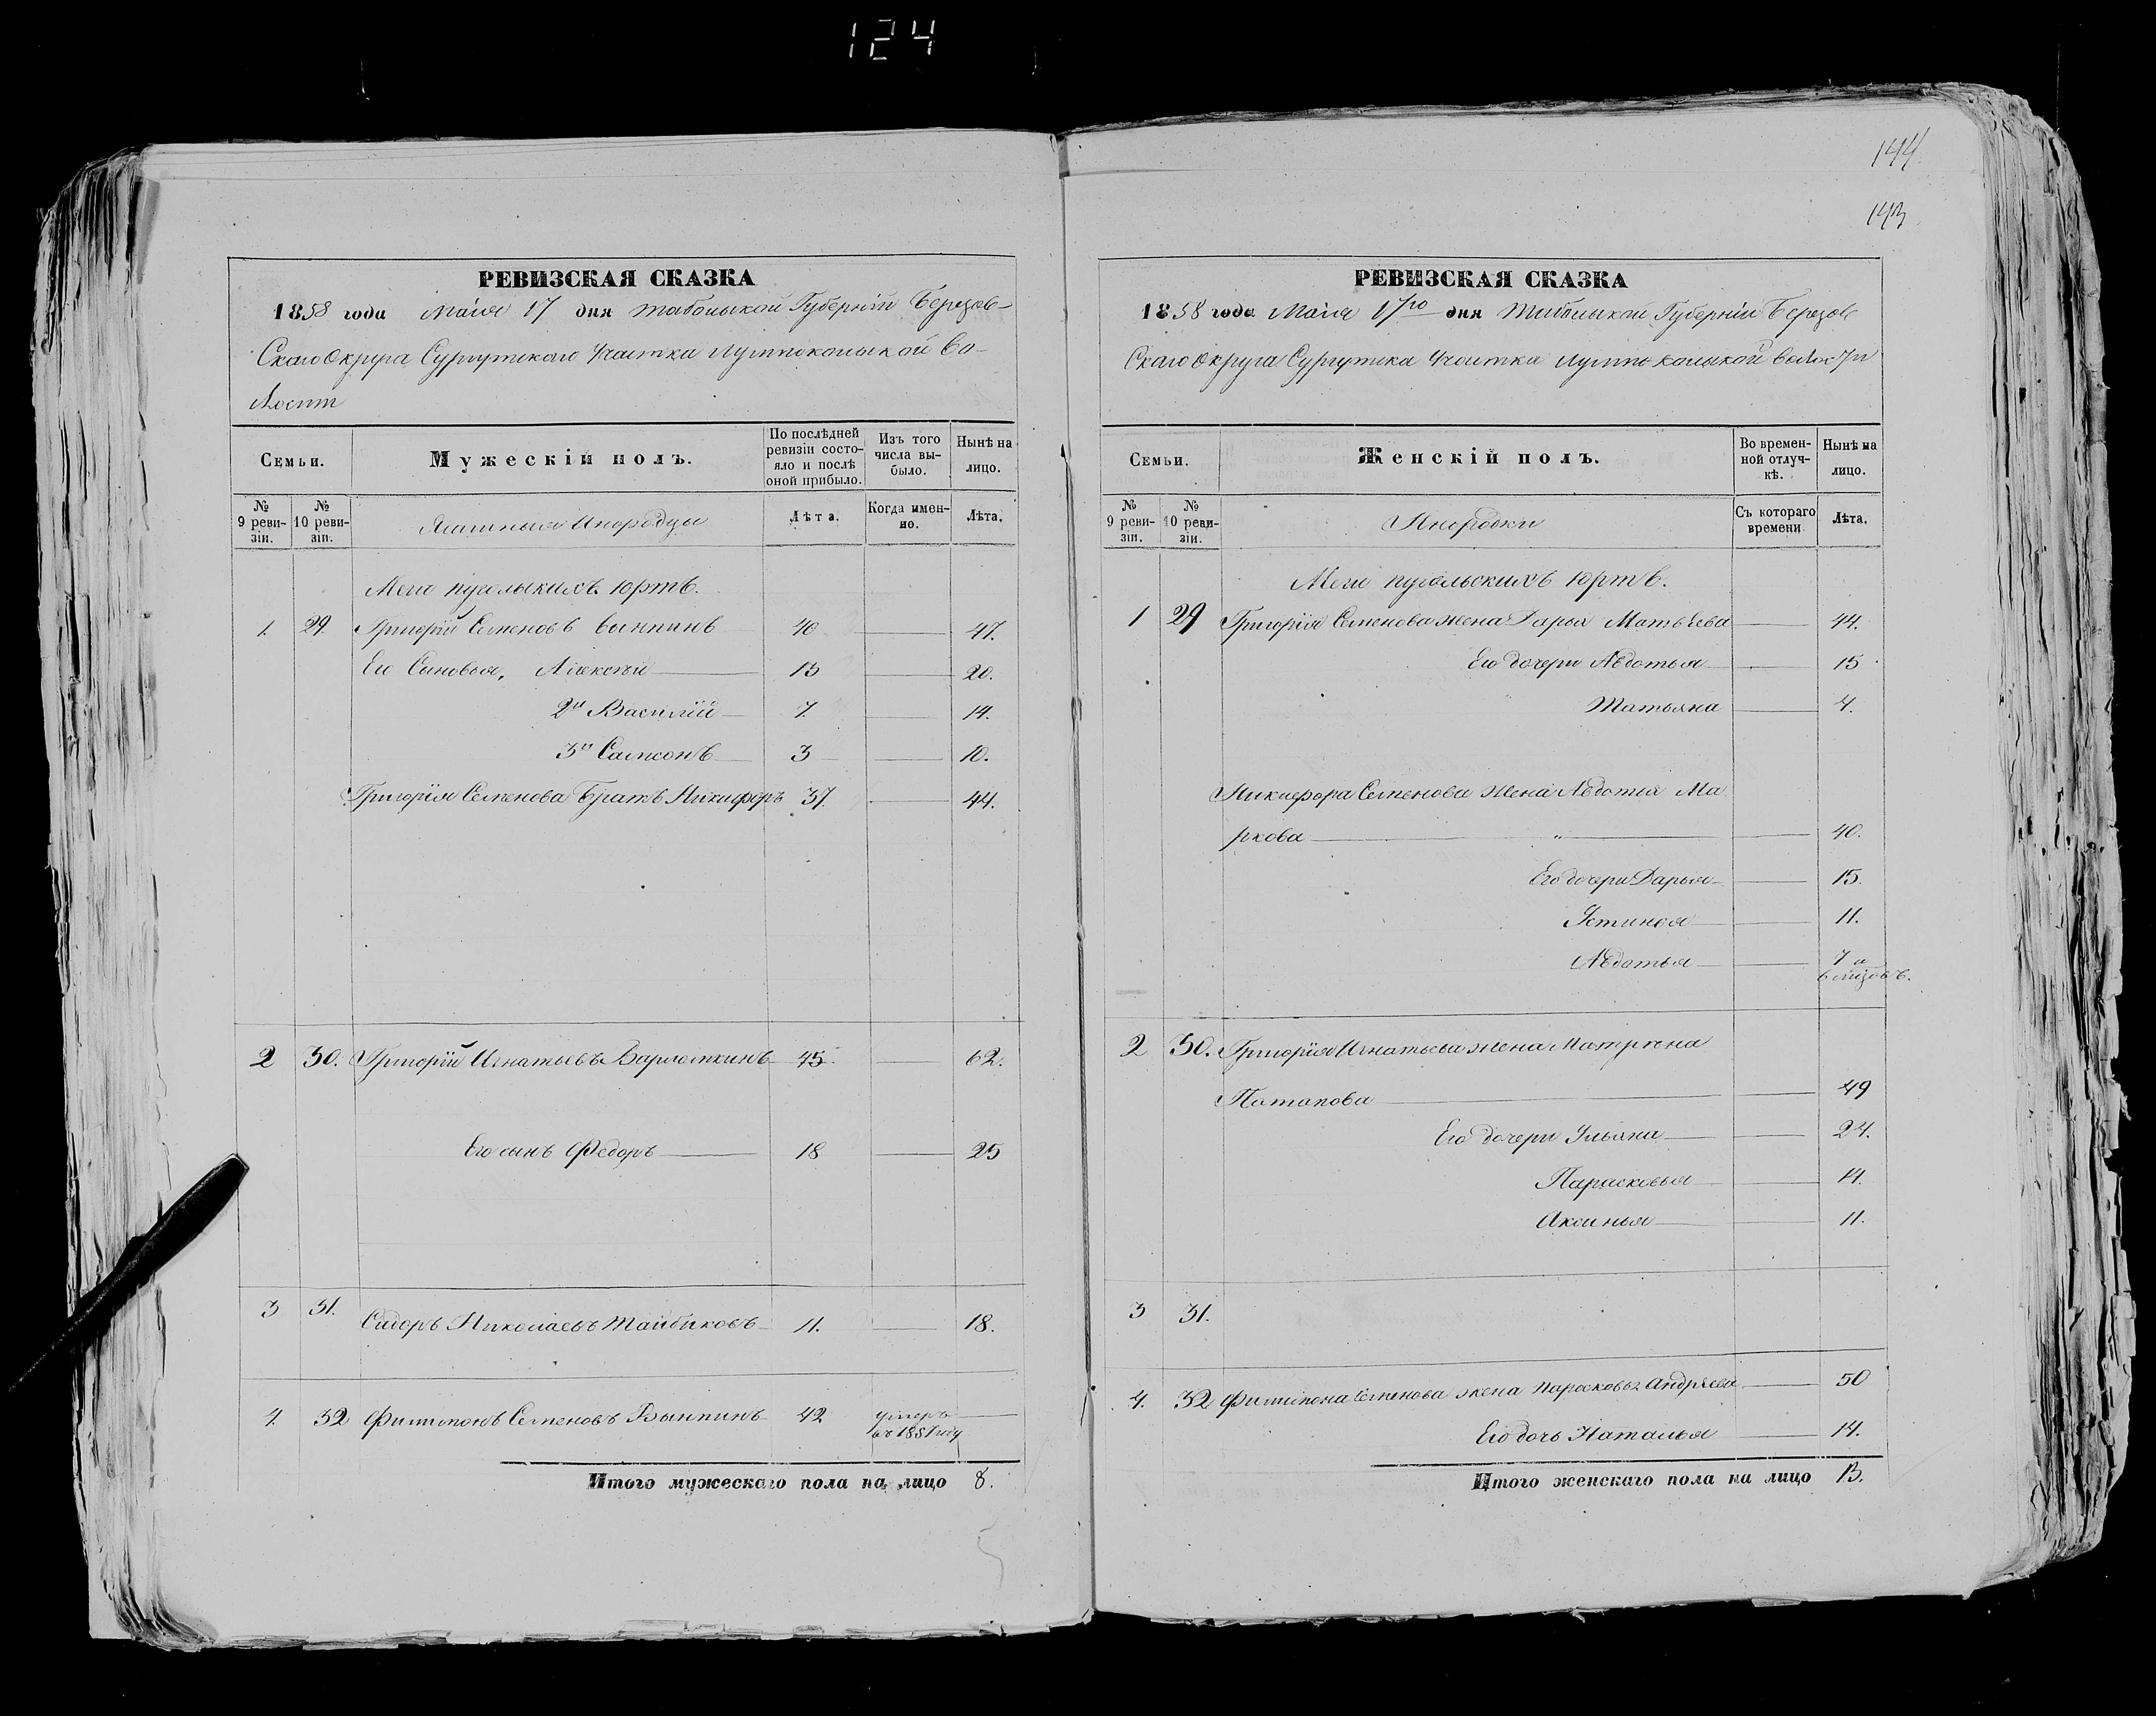 124
144
143
РЕВИЗСКАЯ СКАЗКА
1858 года Маія 17 дня Тобольской Губерніи Березов-
Скаго Округа Сургутскаго Участка Лумпокольской Во-
лости
Семьи.
Мужескій полъ.
По послѣдней ревизіи состояло и послѣ оной прибыло.
Изъ того числа выбыло.
Нынѣ на лицо.
№ 9 ревизіи.
№ 10 ревизіи.
Ясашныя Инородцы
Лѣта.
Когда именно.
Лѣта.
Меги пугольскихъ Юртъ.
1. 29. Григорій Семеновъ Вынпинъ 40 47.
Его Сыновья, Алексѣй 13 20.
2й Василій 7. 14.
3й Самсонъ 3 10.
Григорія Семенова Братъ Никифоръ 37. 44.
2 30. Григорій Игнатьевъ Варломкинъ 45. 62.
Его сынъ Федоръ 18 25
3 31. Сидоръ Николаевъ Тайбиковъ 11. 18.
4. 32 Филипонъ Семеновъ Вынпинъ 42 умеръ
въ 1857 году
Итого мужескаго пола на лицо 8.
РЕВИЗСКАЯ СКАЗКА
1858 года Маія 17го дня Тобольской Губерніи Березов
Скаго Округа Сургутска Участка Лумпокольской волости
Семьи.
Женскій полъ.
Во временной отлучкѣ.
Нынѣ на лицо.
№ 9 ревизіи.
№ 10 ревизіи.
Инородки
Съ котораго времени
Лѣта.
Меги пугольскихъ Юртъ.
1 29 Григорія Семенова жена Дарья Матвѣева 44.
Его дочери Авдотья 15
Татьяна 4.
Никифора Семенова жена Авдотья Ма
ркова " 40.
Его дочери Дарья 15.
Устинья 11.
Авдотья 7 и
6 мѣзовъ.
2 30. Григорія Игнатьева жена Матрена
Потапова 49
Его дочери Ульяна 24.
Парасковья 14.
Аксинья 11.
3 31.
4. 32 Филипона Семенова жена Парасковья Андреева 50
Его дочь Наталья 14.
Итого женскаго пола на лицо 13.